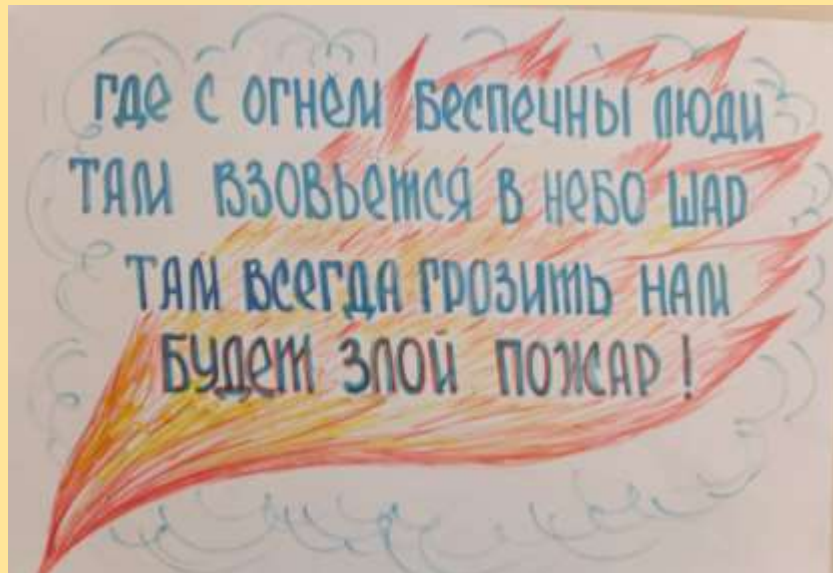 где с огнём беспечны люди
там взовьётся в небо шар
там всегда грозить нам
будет злой пожар!